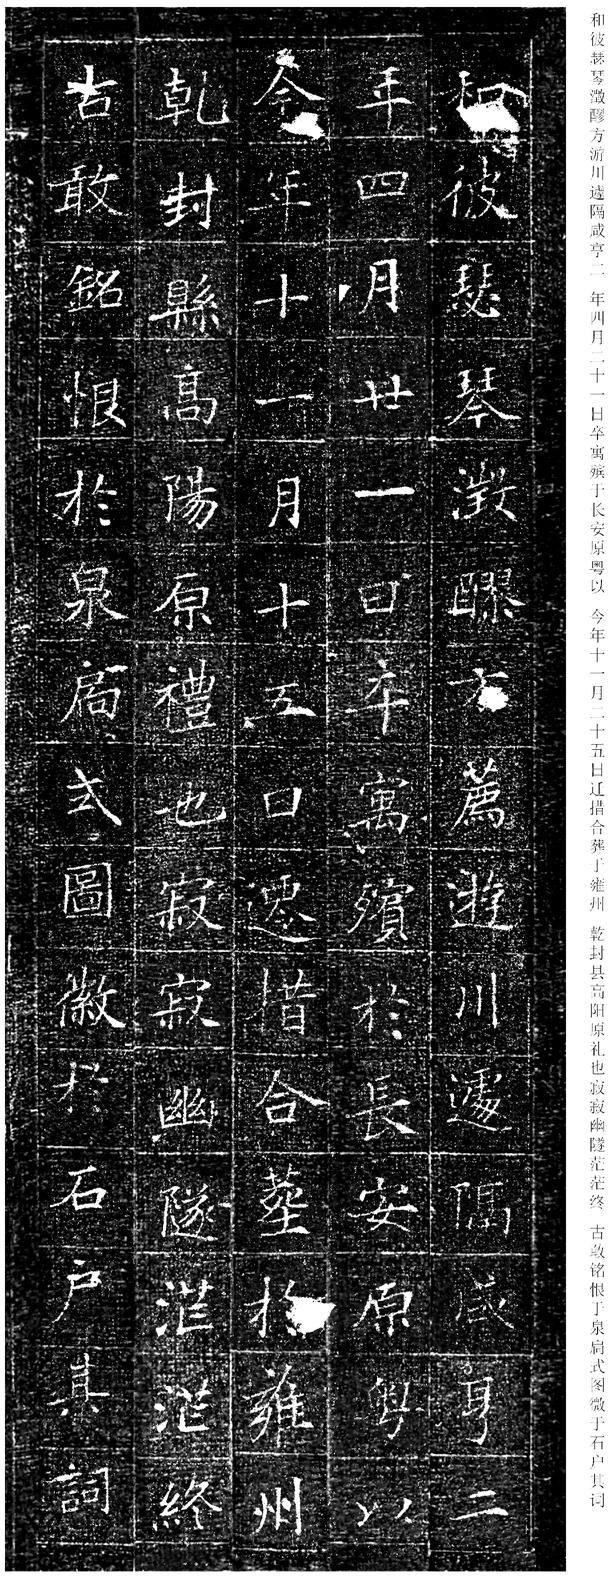 和彼瑟琴澂醪方游川遽隔咸亨二 年四月二十一日卒寓殡于长安原粤以 今年十一月二十五日迁措合葬于雍州 乾封县高阳原礼也寂寂幽隧茫茫终 古敢铭恨于泉扃式图微于石户其词
和彼瑟琴澂醪方薦遊川遽隔咸亨二
年四月廿一日卒寓殯於長安原粤以
今年十一月十五日遷措合葬於雍州
乾封縣高陽原禮也寂寂幽隧茫茫終
古敢銘恨於泉扃式圖徽於石户其詞